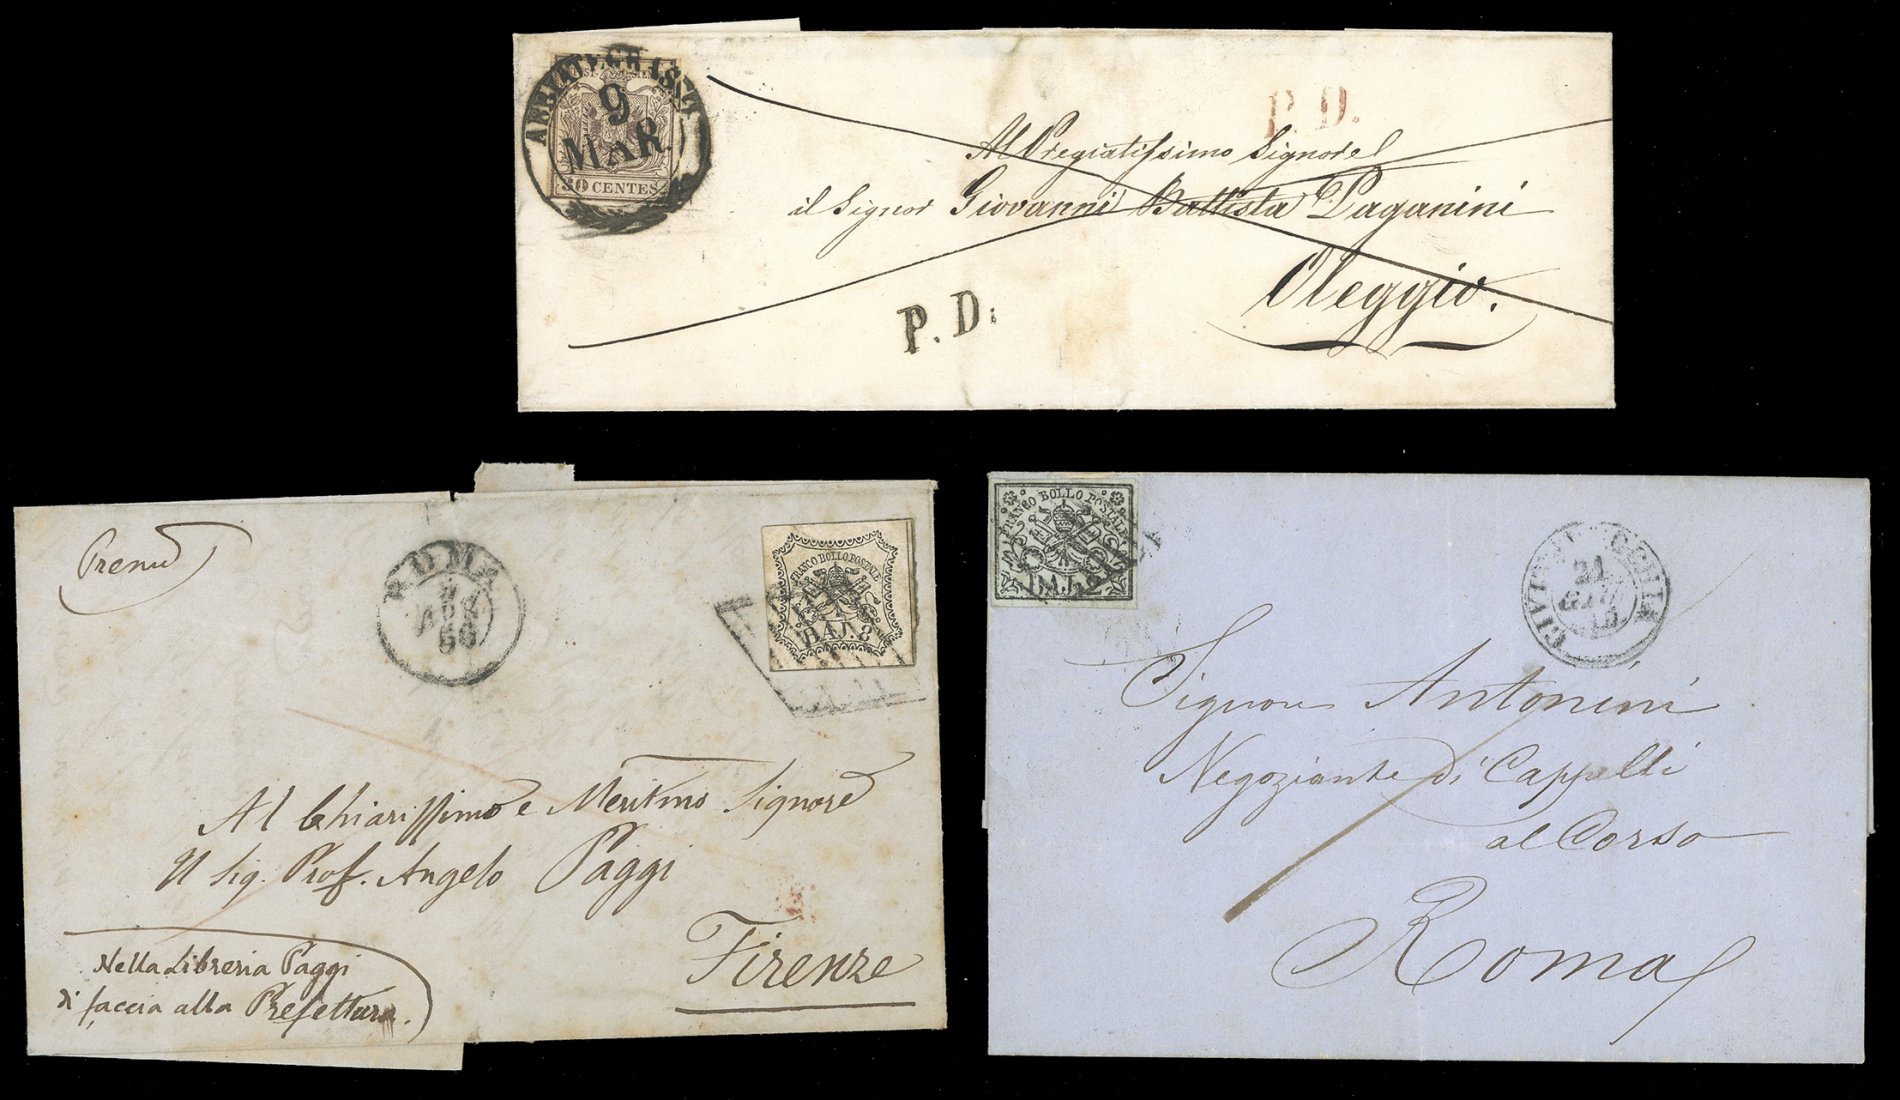 ABBIATEGRASSO
9
MAR.
30 CENTES.
P. D.
Al Pregiatissimo Signore
il Signor Giovanni Battista Paganini
Oleggio.
P. D.
ROMA
66
FRANCO BOLLO POSTALE
BAJ. 8
Al Chiarissimo e Meritmo Signore
Il Sig. Prof. Angelo Paggi
Firenze
Nella Libreria Paggi
di faccia alla Prefettura.
FRANCO BOLLO POSTALE
BAJ. 2
CIVITAVECCHIA
21
GIU
Signor Antonini
Negoziante di Cappelli
al Corso
Roma